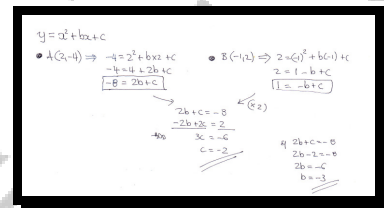 y = x² + bx + c
• A(2,-4) ⇒ -4 = 2² + b×2 + c
-4 = 4 + 2b + c
-8 = 2b + c
• B(-1,2) ⇒ 2 = (-1)² + b(-1) + c
2 = 1 - b + c
1 = -b + c
(×2)
2b + c = -8
-2b + 2c = 2
3c = -6
c = -2
2b + c = -8
2b - 2 = -8
2b = -6
b = -3